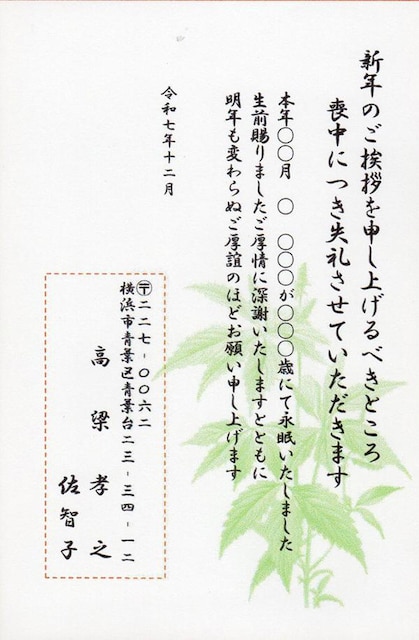 新年のご挨拶を申し上げるべきところ
喪中につき失礼させていただきます
本年〇〇月　〇　〇〇〇が〇〇〇歳にて永眠いたしました
生前賜りましたご厚情に深謝いたしますとともに
明年も変わらぬご厚誼のほどお願い申し上げます
令和七年十二月
〒二二七-〇〇六二
横浜市青葉区青葉台二三-三四-一二
高梁孝之
佐智子